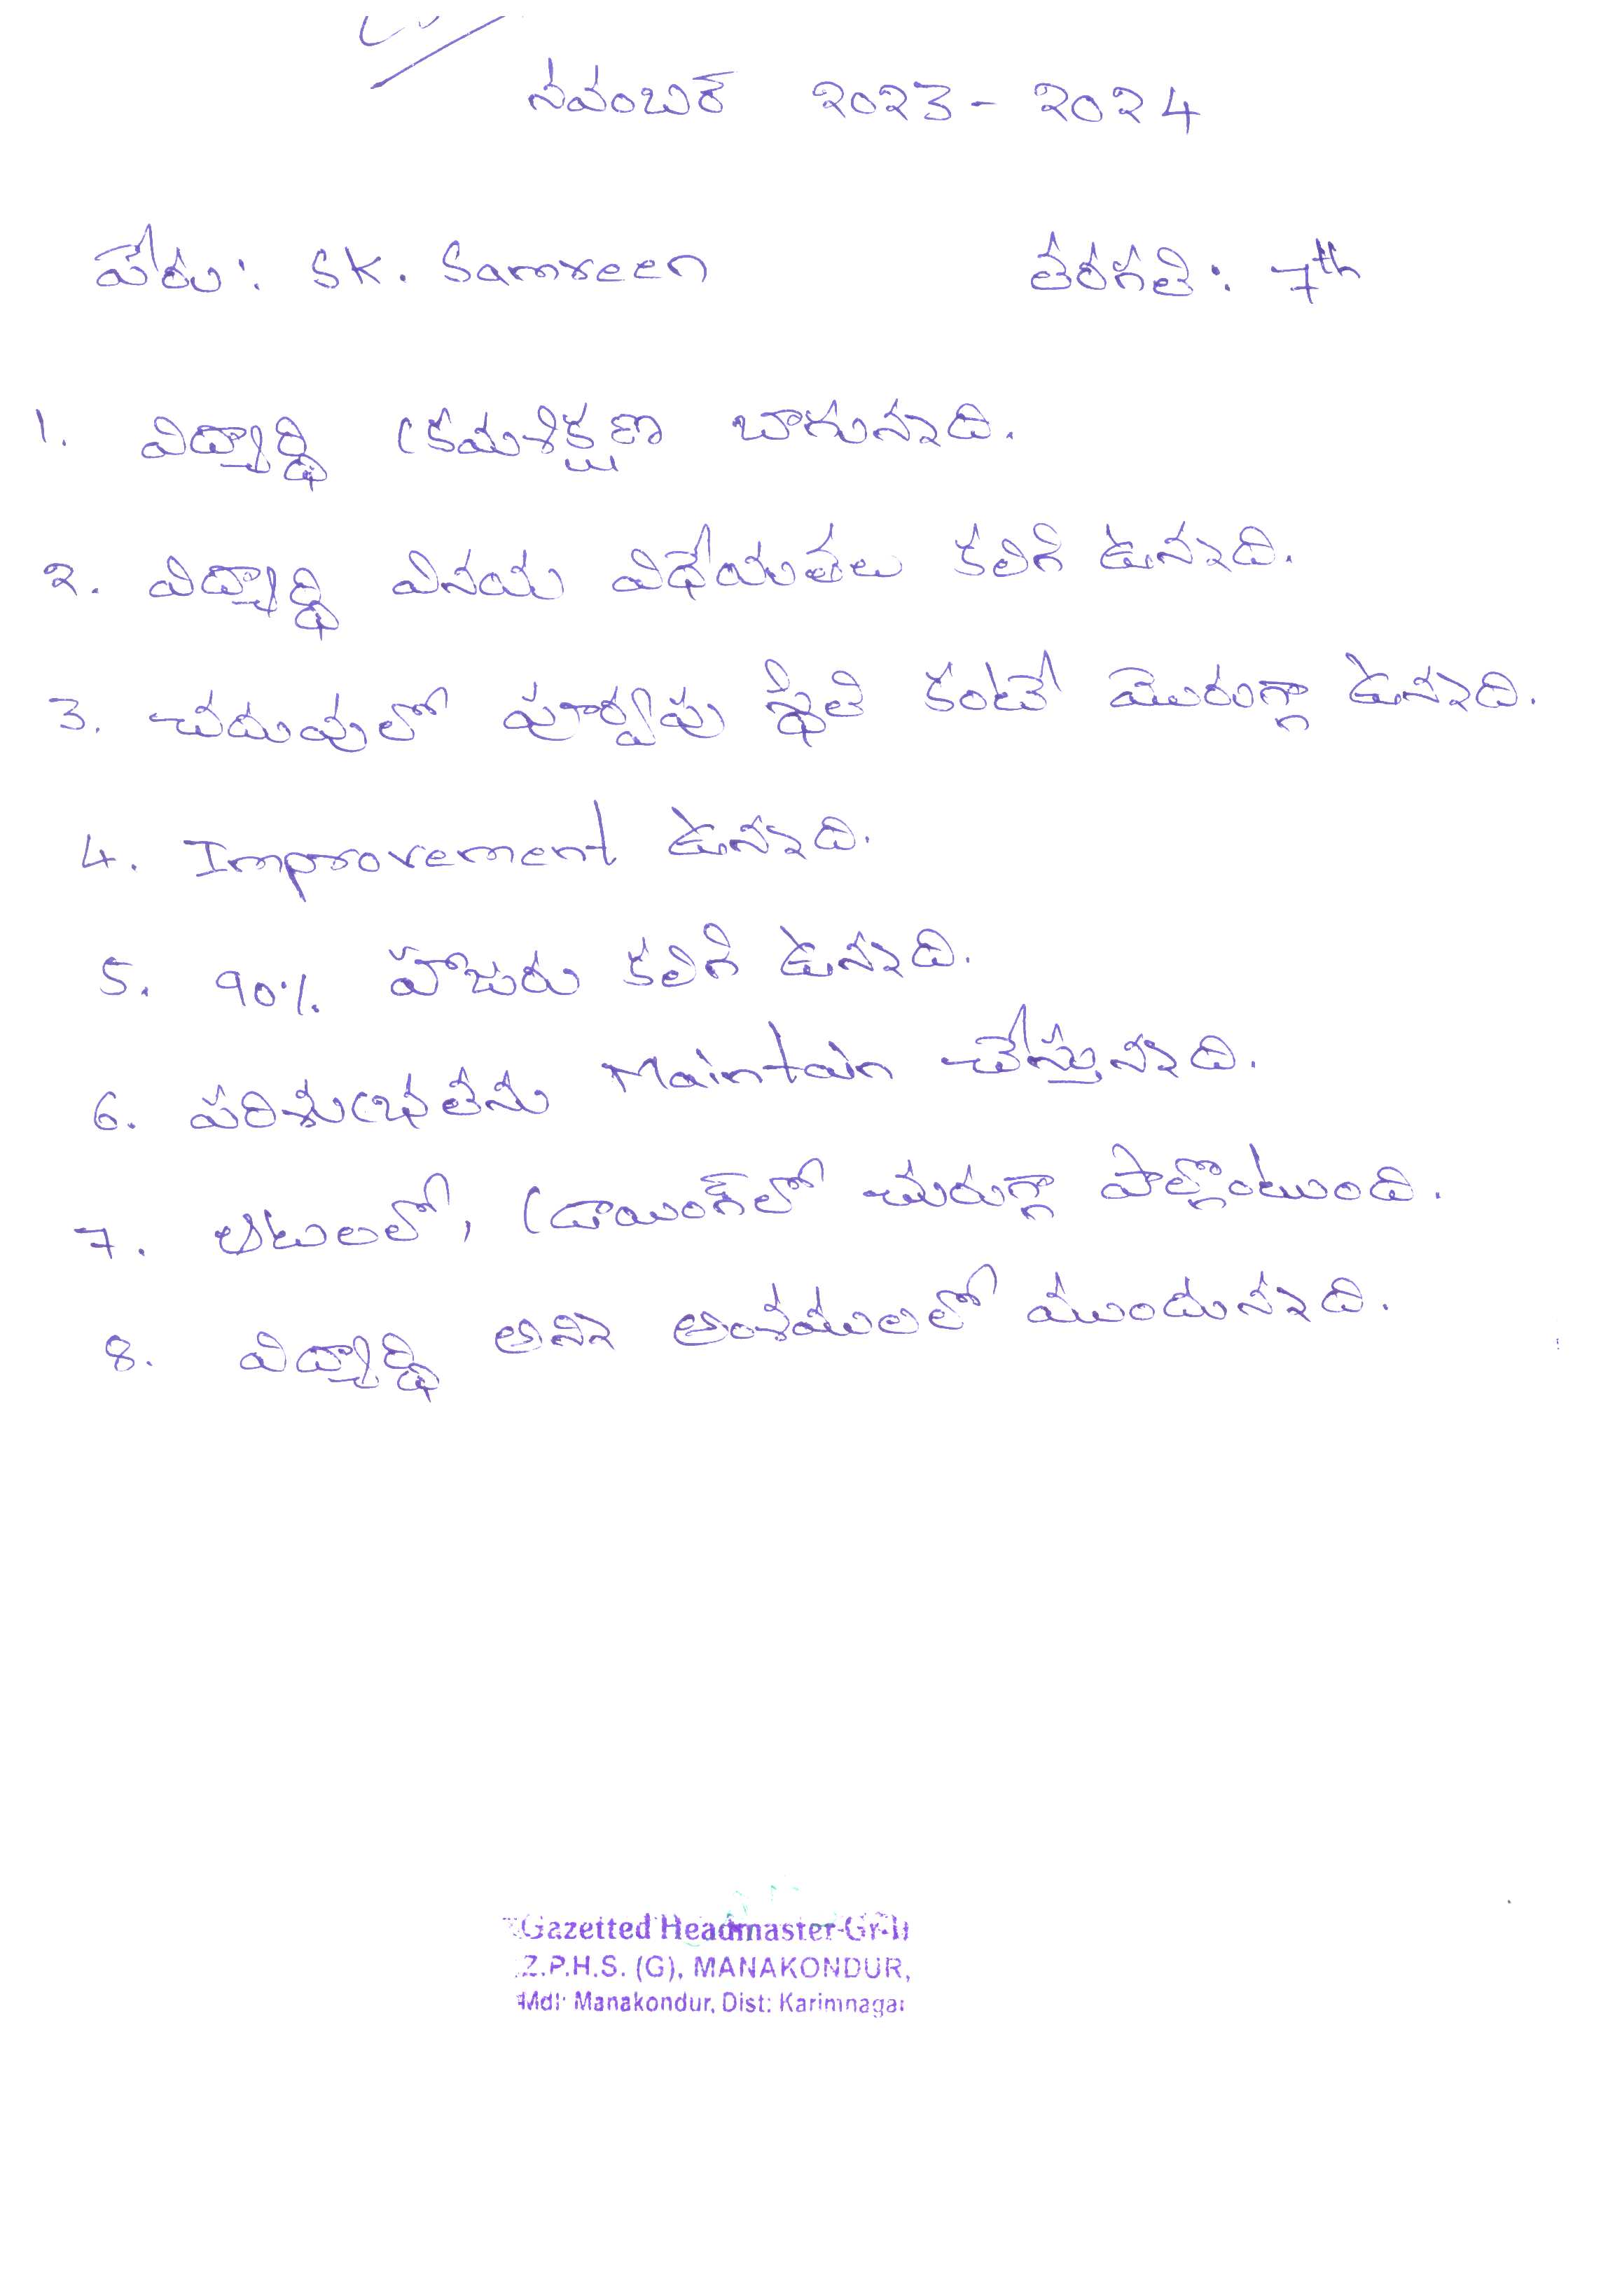 నవంబర్ 2023 - 2024
పేరు: SK. Samreen తరగతి: 7th
1. విద్యార్థి క్రమశిక్షణ బాగున్నది.
2. విద్యార్థి వినయ విధేయతలు కలిగి ఉన్నది.
3. చదువులో పూర్వపు స్థితి కంటే మెరుగ్గా ఉన్నది.
4. Improvement ఉన్నది.
5. 90% హాజరు కలిగి ఉన్నది.
6. పరిశుభ్రతను Maintain చేస్తున్నది.
7. ఆటలలో, డ్రాయింగ్‌లో చురుగ్గా పాల్గొంటుంది.
8. విద్యార్థి అన్ని అంశములలో ముందున్నది.
Gazetted Headmaster-Gr-II
Z.P.H.S. (G), MANAKONDUR,
Mdl: Manakondur, Dist: Karimnagar